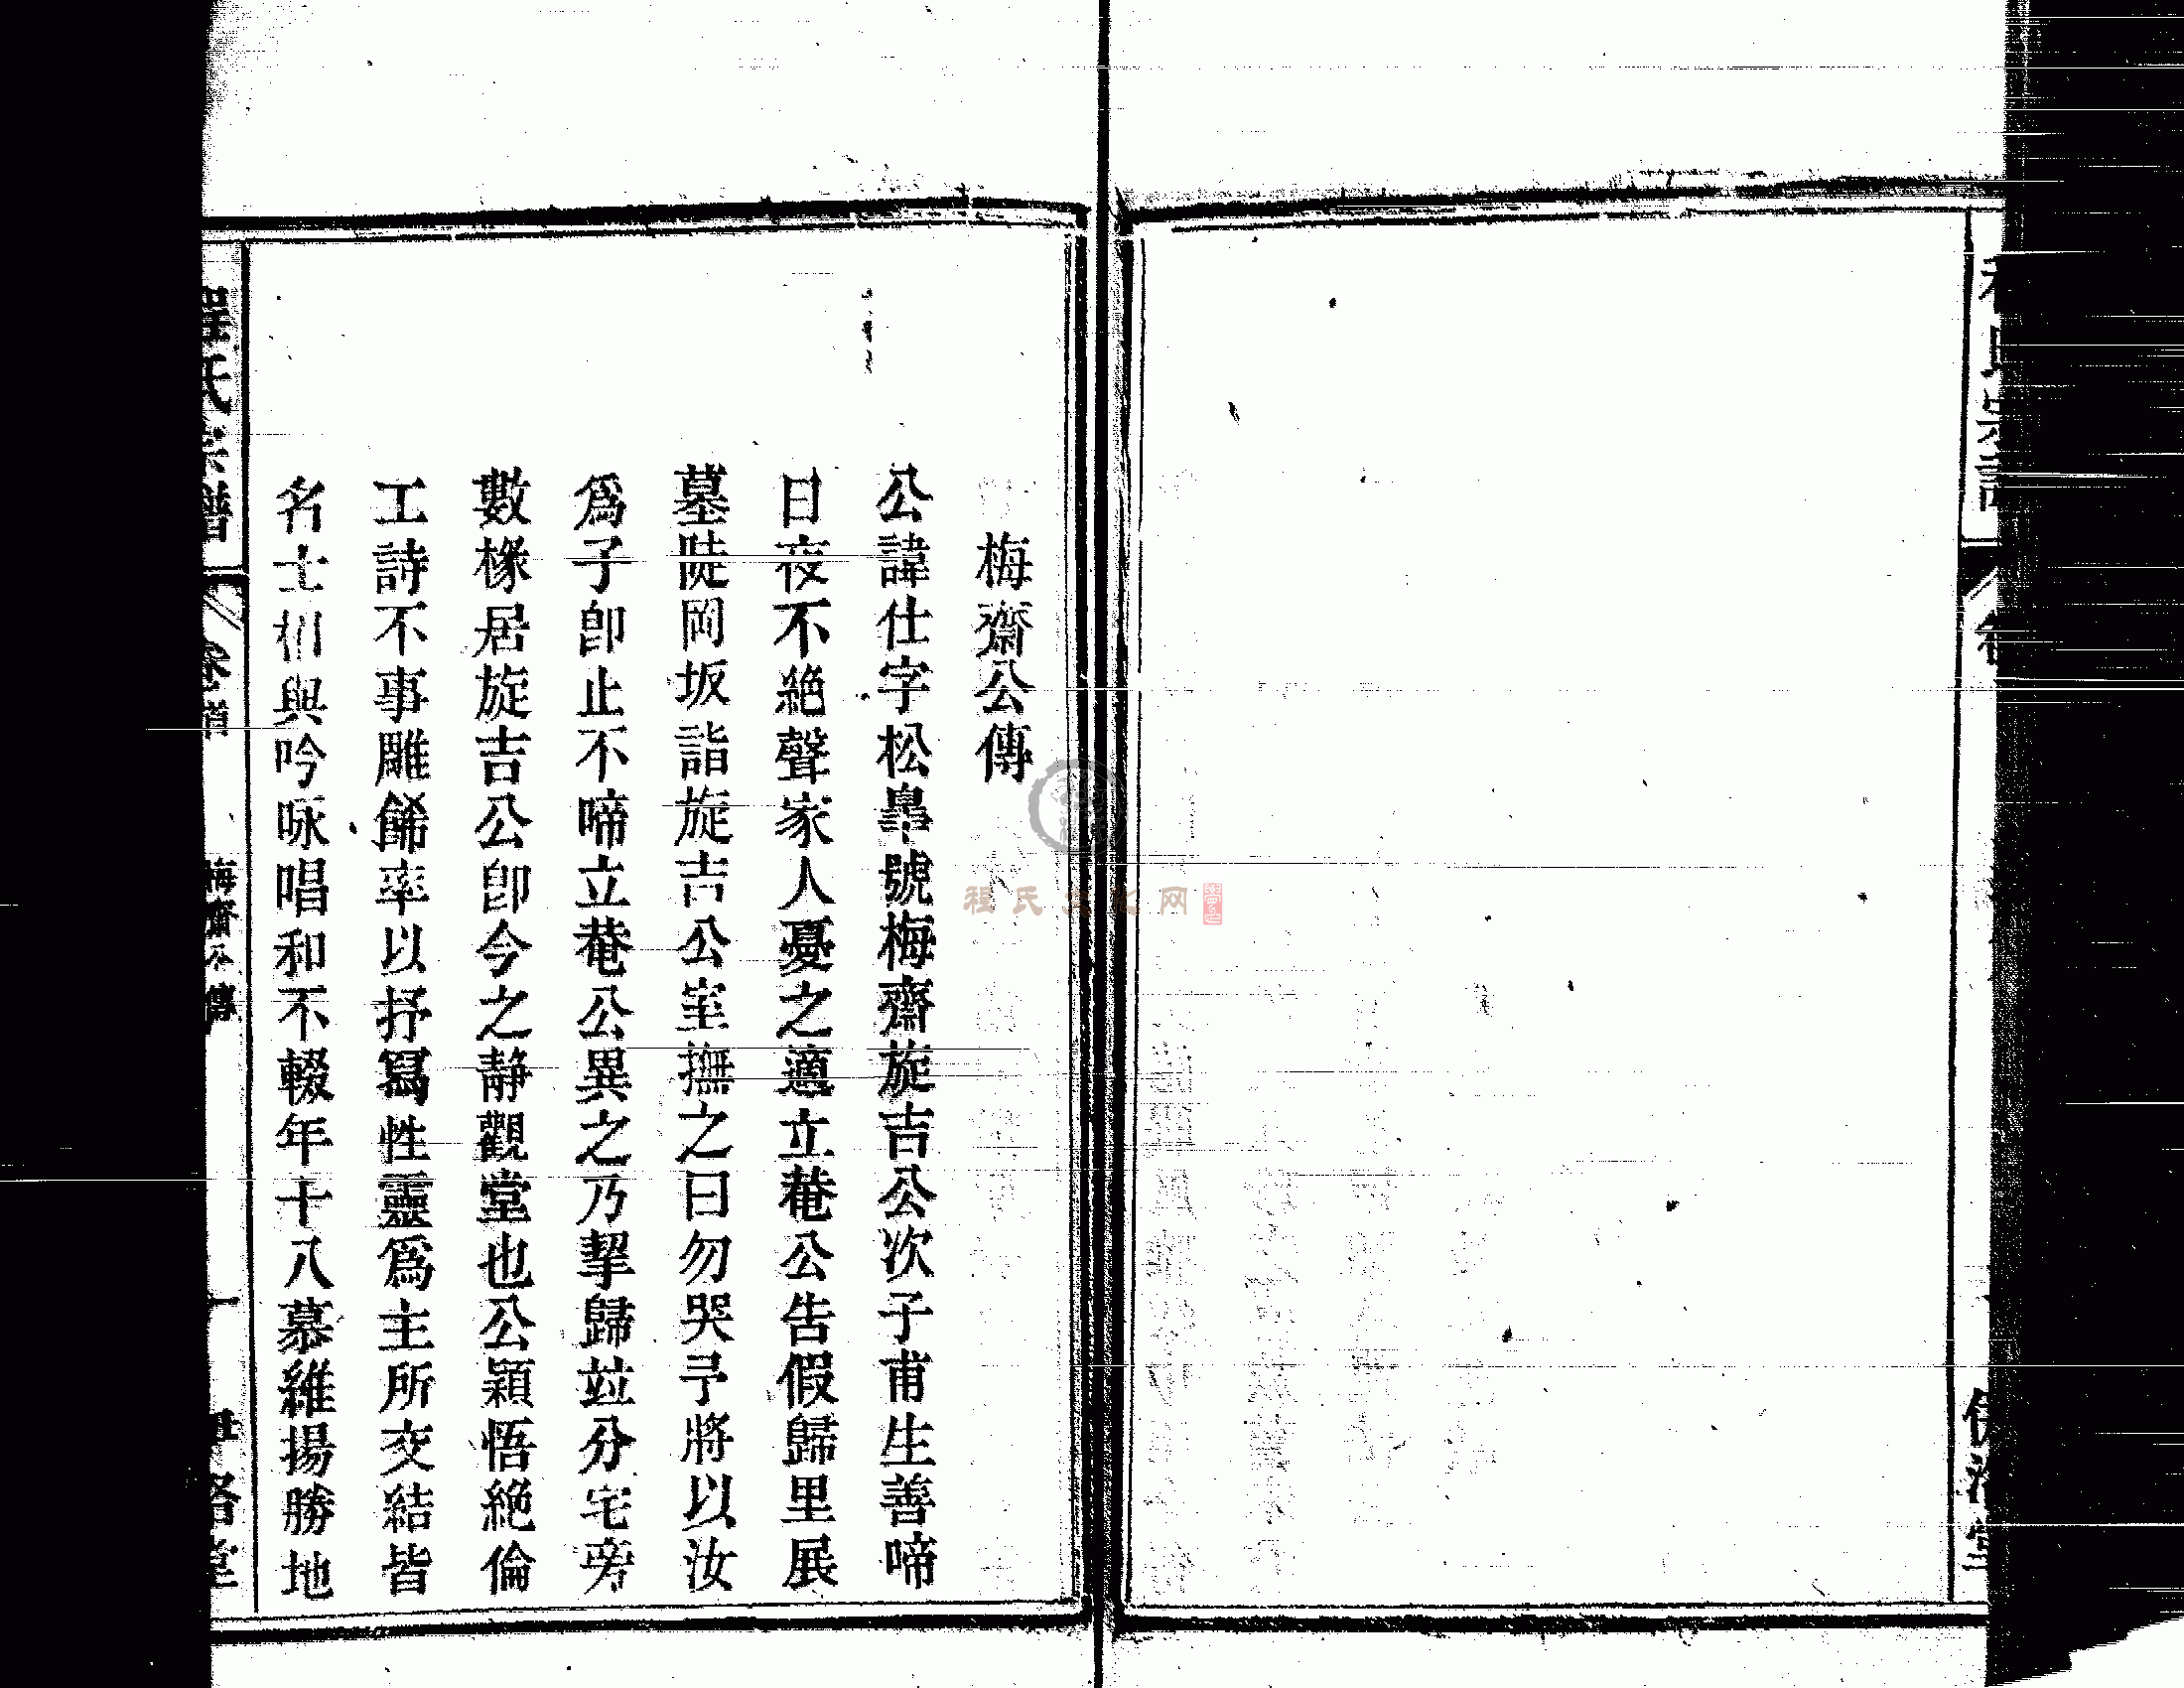 程氏宗譜
梅齋公傳
公諱仕字松皐號梅齋旋吉公次子甫生善啼
日夜不絕聲家人憂之適立菴公告假歸里展
墓陡岡坂詣旋吉公室撫之曰勿哭予將以汝
爲子卽止不啼立菴公異之乃挈歸竝分宅旁
數椽居旋吉公卽今之靜觀堂也公穎悟絕倫
工詩不事雕餙率以抒寫性靈爲主所交結皆
名士相與吟咏唱和不輟年十八慕維揚勝地
程氏宗譜 卷首 梅齋公傳 洛堂
程氏文化网